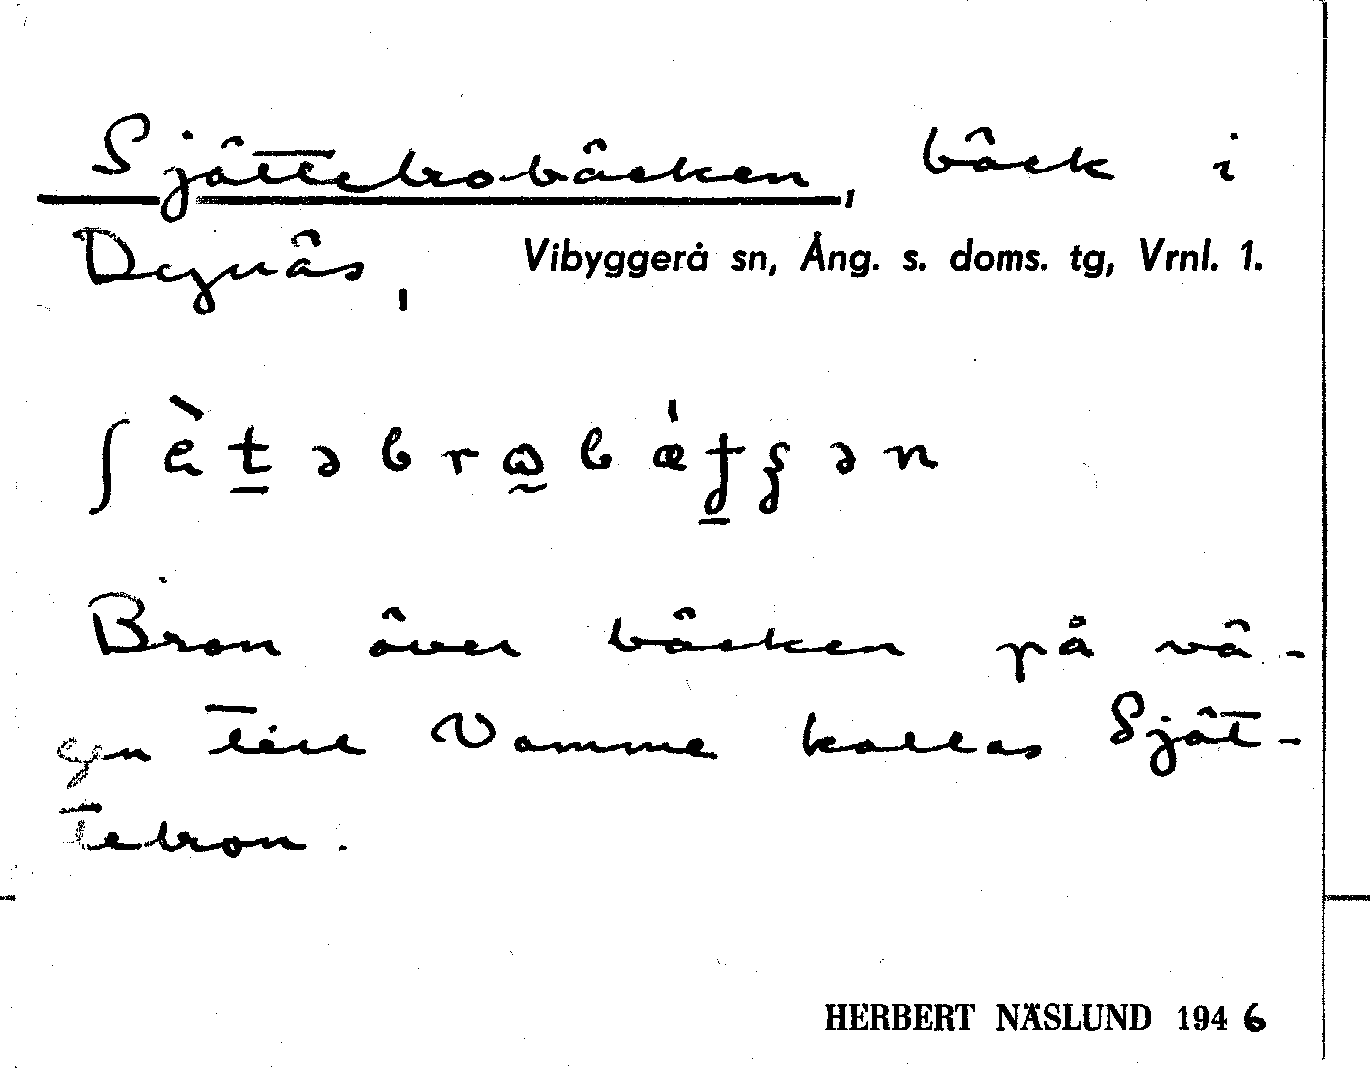 Sjättebrobäcken, bäck i
Dynäs, Vibyggerå sn, Ång. s. doms. tg, Vrnl. 1.
Bron över bäcken på vä-
gen till Vamme kallas Sjät-
tebron.
HERBERT NÄSLUND 1946